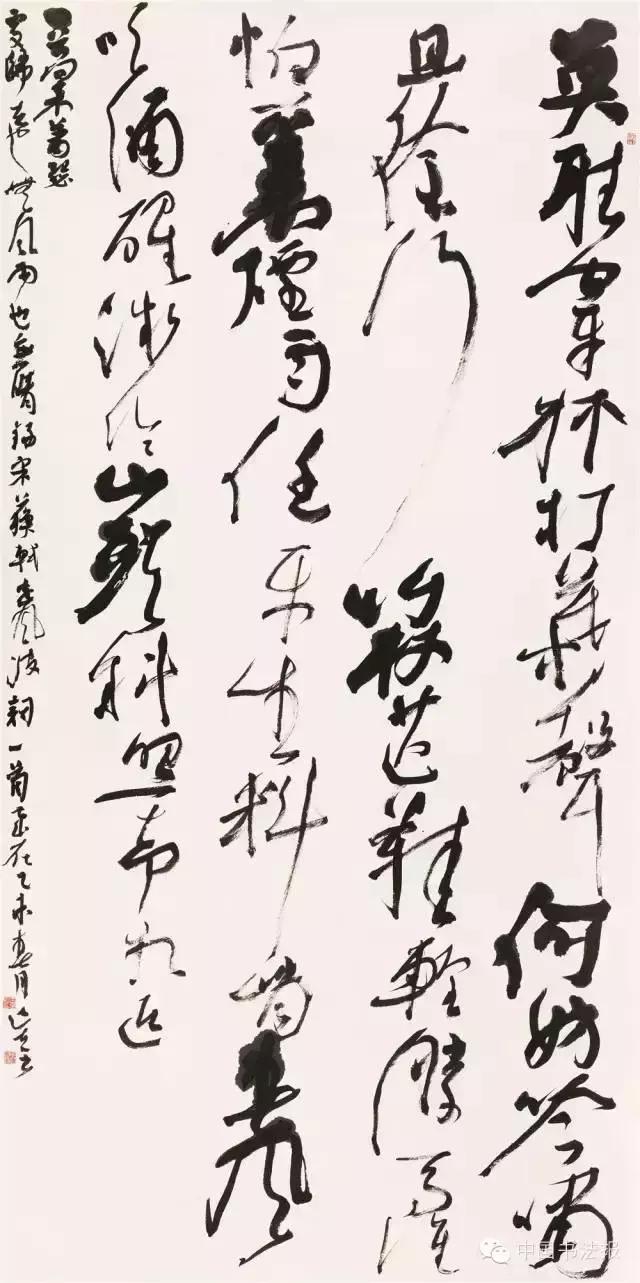 莫聽穿林打葉聲何妨吟嘯
且徐行竹杖芒鞋輕勝馬誰
怕蓑煙雨任平生料峭春風
吹酒醒微冷山頭斜照卻相迎
回首向來蕭瑟
處歸去也無風雨也無晴錄宋蘇軾定風波詞一首歲在乙未春月
中国书法报